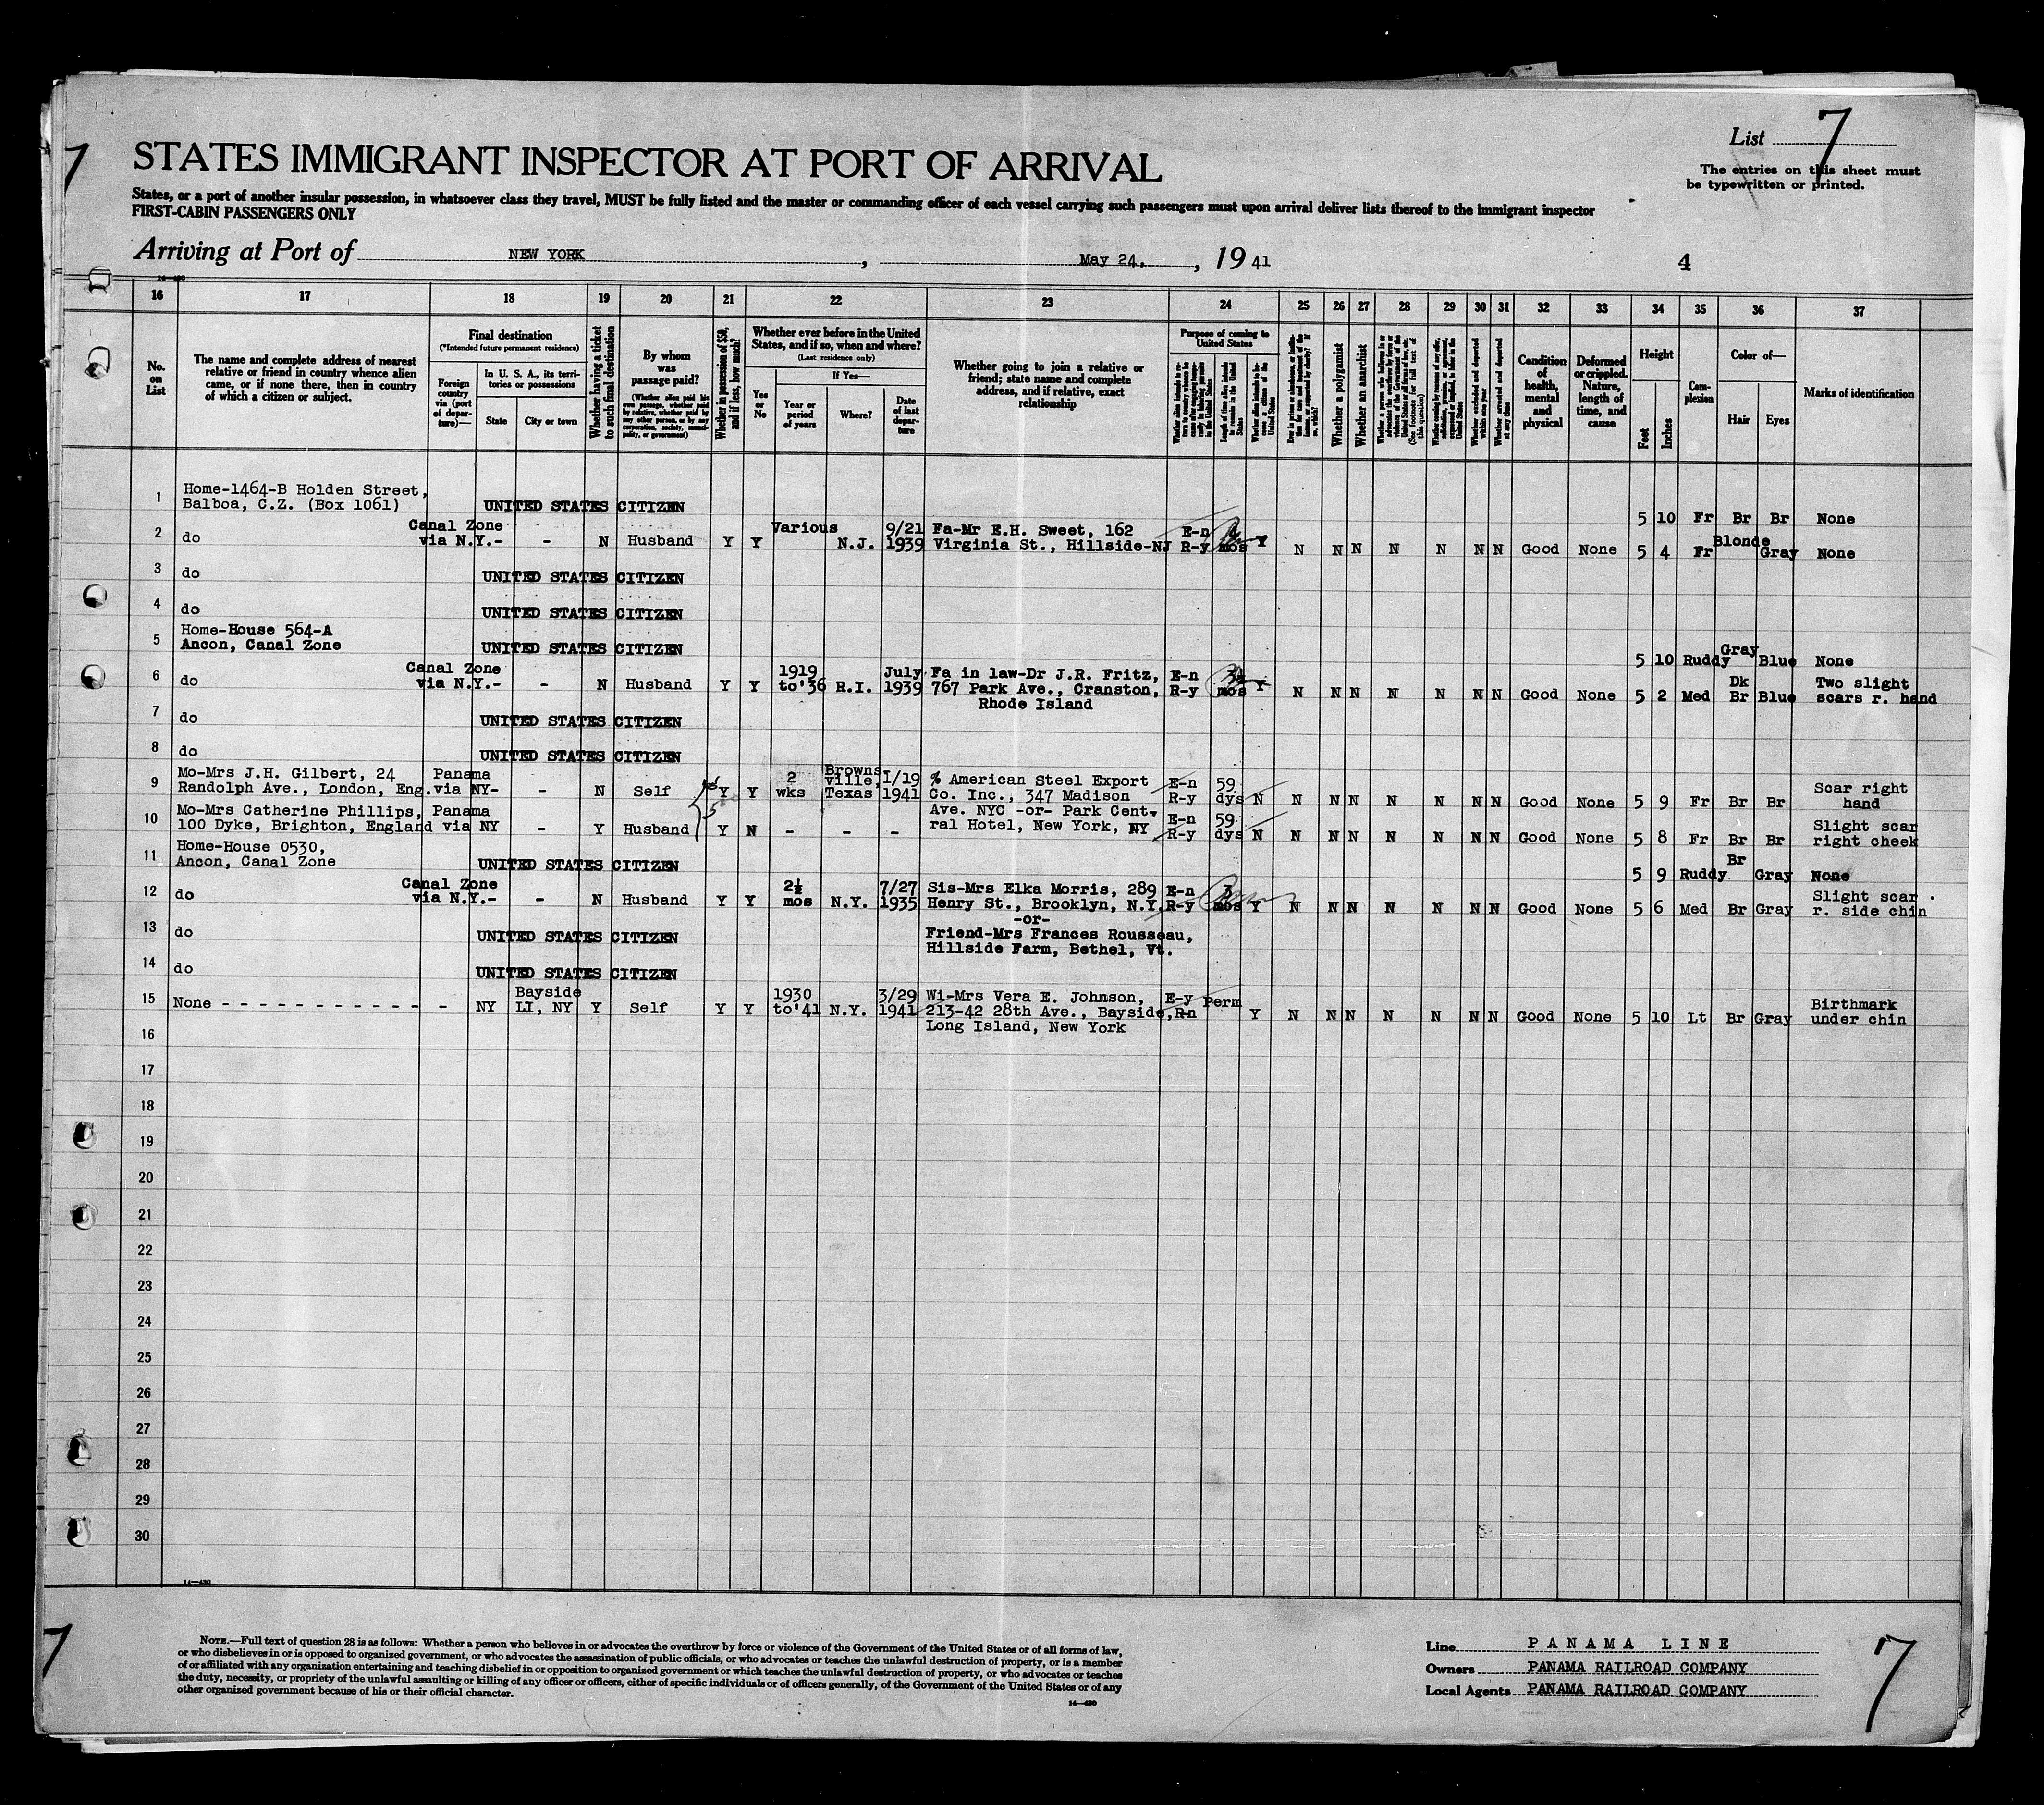 List 7
The entries on this sheet must
be typewritten or printed.
7
STATES IMMIGRANT INSPECTOR AT PORT OF ARRIVAL
States, or a port of another insular possession, in whatsoever class they travel, MUST be fully listed and the master or commanding officer of each vessel carrying such passengers must upon arrival deliver lists thereof to the immigrant inspector
FIRST-CABIN PASSENGERS ONLY
Arriving at Port of NEW YORK, May 24, , 19 41
4
16 17 18 19 20 21 22 23 24 25 26 27 28 29 30 31 32 33 34 35 36 37
No. on List
The name and complete address of nearest
relative or friend in country whence alien
came, or if none there, then in country
of which a citizen or subject.
Final destination
(*Intended future permanent residence)
Foreign country via (port of depar-ture)—
In U. S. A., its terri-tories or possessions
State
City or town
Whether having a ticket to such final destination
By whom was passage paid?
(Whether alien paid his own passage, whether paid by relative, whether paid by any other person, or by any corporation, society, munici-pality, or government)
Whether in possession of $50, and if less, how much?
Whether ever before in the United
States, and if so, when and where?
(Last residence only)
Yes or No
If Yes—
Year or period of years
Where?
Date of last depar-ture
Whether going to join a relative or
friend; state name and complete
address, and if relative, exact
relationship
Purpose of coming to United States
Length of time alien intends to remain in the United States
Whether alien intends to be-come a citizen of the United States
Whether a polygamist
Whether an anarchist
Whether excluded and deported within one year
Whether arrested and deported at any time
Condition of health, mental and physical
Deformed or crippled. Nature, length of time, and cause
Height
Feet
Inches
Com-plexion
Color of—
Hair
Eyes
Marks of identification
1 Home-1464-B Holden Street,
Balboa, C.Z. (Box 1061) UNITED STATES CITIZEN 5 10 Fr Br Br None
2 do Canal Zone via N.Y.- - N Husband Y Y Various N.J. 9/21 1939 Fa-Mr E.H. Sweet, 162
Virginia St., Hillside-NJ E-n R-y mos Y N N N N N N N Good None 5 4 Fr Blonde Gray None
3 do UNITED STATES CITIZEN
4 do UNITED STATES CITIZEN
5 Home-House 564-A
Ancon, Canal Zone UNITED STATES CITIZEN 5 10 Ruddy Gray Blue None
6 do Canal Zone via N.Y.- - N Husband Y Y 1919 to'36 R.I. July 1939 Fa in law-Dr J.R. Fritz,
767 Park Ave., Cranston,
Rhode Island E-n R-y 3½ mos Y N N N N N N N Good None 5 2 Med Dk Br Blue Two slight
scars r. hand
7 do UNITED STATES CITIZEN
8 do UNITED STATES CITIZEN
9 Mo-Mrs J.H. Gilbert, 24
Randolph Ave., London, Eng. Panama via NY- - N Self Y Y 2 wks Browns-ville, Texas 1/19 1941 % American Steel Export
Co. Inc., 347 Madison E-n R-y 59 dys N N N N N N N N Good None 5 9 Fr Br Br Scar right
hand
10 Mo-Mrs Catherine Phillips,
100 Dyke, Brighton, England Panama via NY - Y Husband Y N - - - Ave. NYC -or- Park Cent-
ral Hotel, New York, NY E-n R-y 59 dys N N N N N N N N Good None 5 8 Fr Br Br Slight scar
right cheek
11 Home-House 0530,
Ancon, Canal Zone UNITED STATES CITIZEN 5 9 Ruddy Br Gray None
12 do Canal Zone via N.Y.- - N Husband Y Y 2½ mos N.Y. 7/27 1935 Sis-Mrs Elka Morris, 289
Henry St., Brooklyn, N.Y. E-n R-y 3 mos Y N N N N N N N Good None 5 6 Med Br Gray Slight scar
r. side chin
-or-
13 do UNITED STATES CITIZEN Friend-Mrs Frances Rousseau,
Hillside Farm, Bethel, Vt.
14 do UNITED STATES CITIZEN
15 None - - - - - - - - - - - - - NY Bayside LI, NY Y Self Y Y 1930 to'41 N.Y. 3/29 1941 Wi-Mrs Vera E. Johnson,
213-42 28th Ave., Bayside,
Long Island, New York E-y R-n Perm Y N N N N N N N Good None 5 10 Lt Br Gray Birthmark
under chin
16
17
18
19
20
21
22
23
24
25
26
27
28
29
30
7
NOTE.—Full text of question 28 is as follows: Whether a person who believes in or advocates the overthrow by force or violence of the Government of the United States or of all forms of law,
or who disbelieves in or is opposed to organized government, or who advocates the assassination of public officials, or who advocates or teaches the unlawful destruction of property, or is a member
of or affiliated with any organization entertaining and teaching disbelief in or opposition to organized government or which teaches the unlawful destruction of property, or who advocates or teaches
the duty, necessity, or propriety of the unlawful assaulting or killing of any officer or officers, either of specific individuals or of officers generally, of the Government of the United States or of any
other organized government because of his or their official character.
14—430
Line PANAMA LINE
Owners PANAMA RAILROAD COMPANY
Local Agents PANAMA RAILROAD COMPANY
7